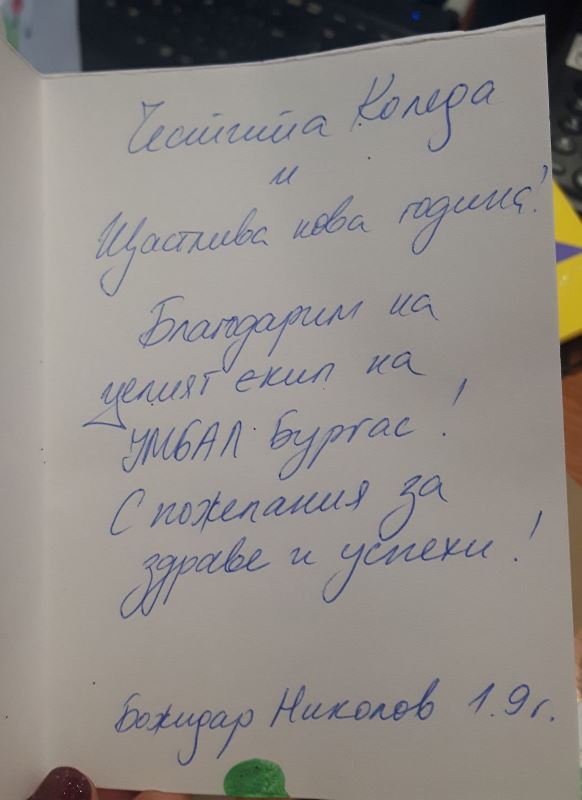 Честита Коледа
и
Щастлива нова година!
Благодарим на
целият екип на
УМБАЛ Бургас!
С пожелания за
здраве и успехи!
Божидар Николов 1.9г.